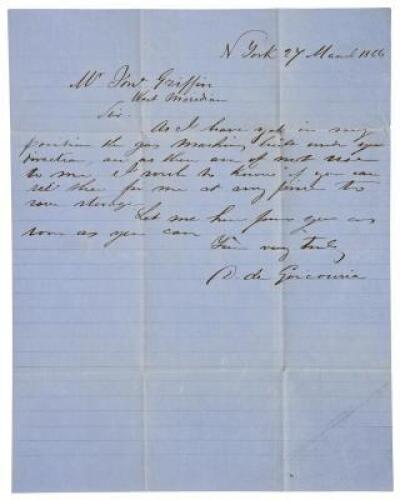 N York 27 March 1866
Mr Jno Griffin
West Meredian
Sir.
As I have yet in my
position the gas machines, build under your
direction, and as they are of not use
to me, I wish to know if you can
sell them for me at any price to
save storage.
Let me hear from you as
soon as you can
Yours very truly
D. de Goicouria